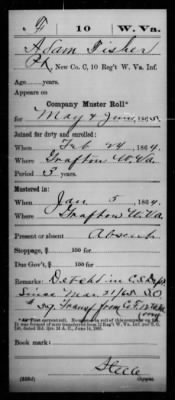 F | 10 | W. Va.
Adam Fisher
Pt, New Co. C, 10 Reg't W. Va. Inf.
Age years.
Appears on
Company Muster Roll*
for May & June, 1865.
Joined for duty and enrolled:
When Feb 24, 1864.
Where Grafton W.Va.
Period 3 years.
Mustered in:
When Jan 5, 1864.
Where Grafton W.Va.
Present or absent Absent
Stoppage, $ 100 for
Due Gov't, $ 100 for
Remarks: Det'cht in
Since Mar 21/65
Transf from Co. F
Book mark:
Steele
(858d) Copyist.